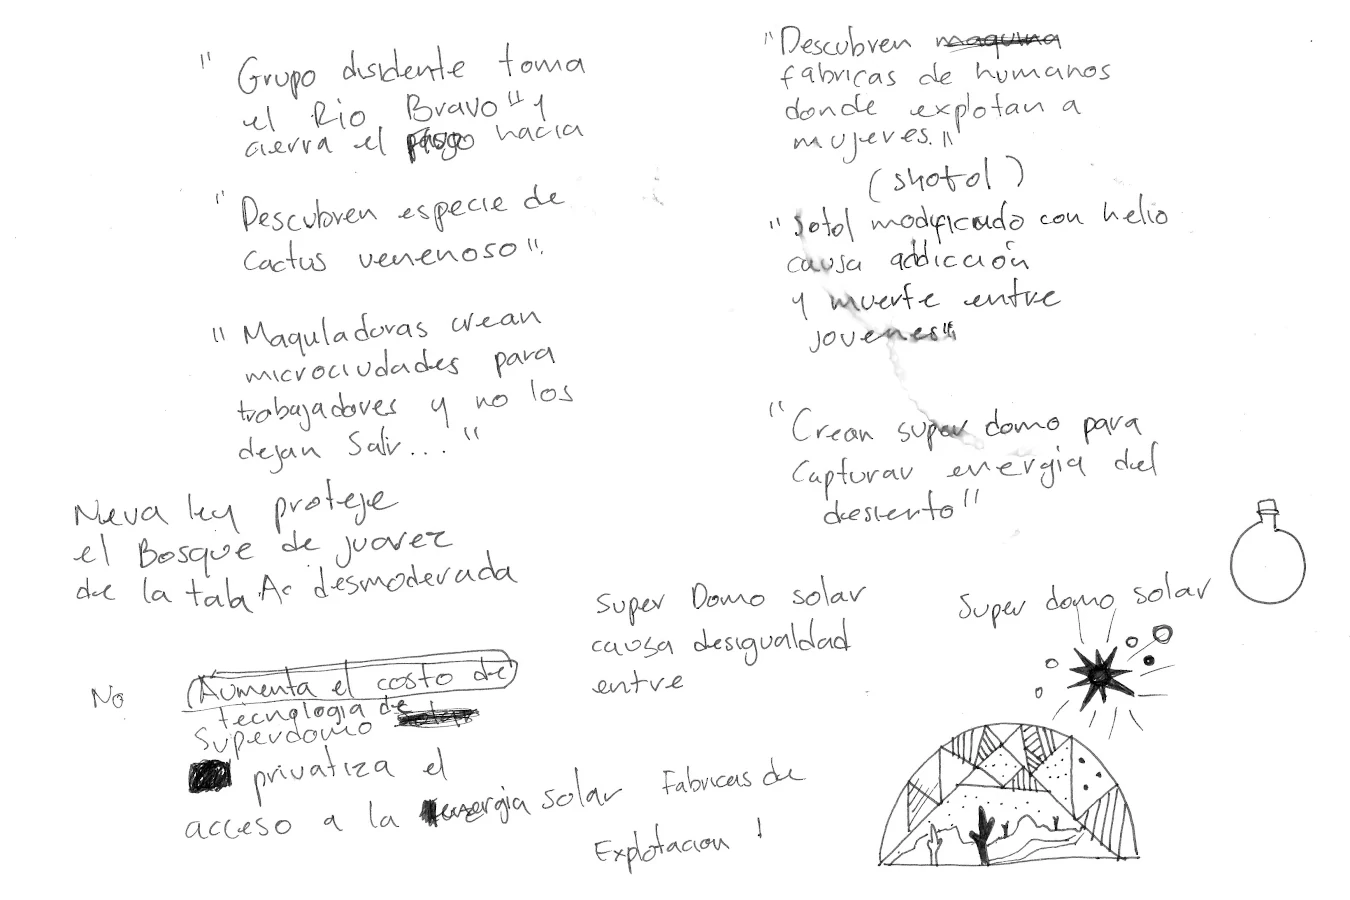 " Grupo disidente toma
el Rio Bravo" y
cierra el paso hacia
" Descubren especie de
cactus venenoso".
" Maquladoras crean
microciudades para
trabajadores y no los
dejan Salir... "
Nueva ley proteje
el Bosque de juarez
de la tala desmoderada
No
(Aumenta el costo de)
tecnologia de
Superdomo
privatiza el
acceso a la energia solar
"Descubren maquina
fabricas de humanos
donde explotan a
mujeres."
(shotol)
" Sotol modificado con helio
causa addicción
y muerte entre
jovenes".
" Crean super domo para
Capturar energia del
desierto"
Super Domo solar
causa desigualdad
entre
Super domo solar
Fabricas de
Explotacion !